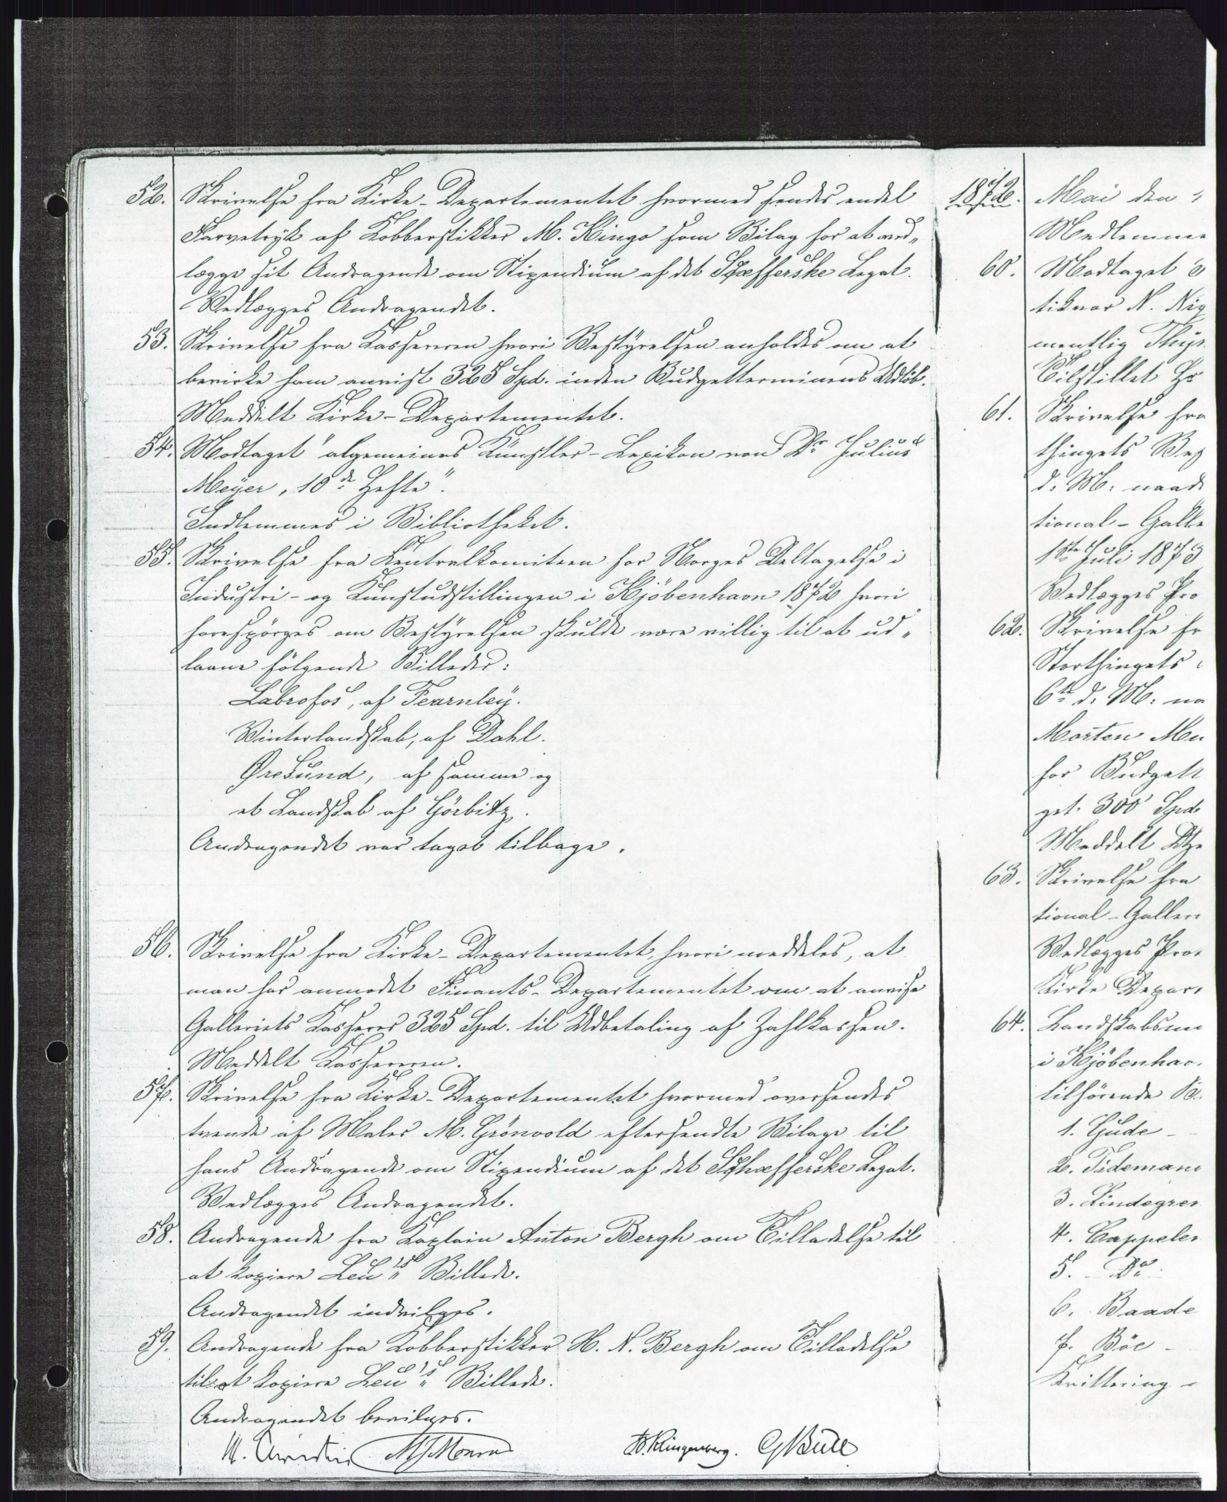 52. Skrivelse fra Kirke-Departementet hvormed sendes endel
Farvetryk af Kobberstikker M. Klingo som Bilag for at ved-
lægge sit Andragende om Stipendium af det Schæfferske Legat.
Vedlægges Andragendet.
53. Skrivelse fra Kassereren hvori Bestyrelsen anholdes om at
bevirke ham anvist 325 Spd. inden Budgetterminens Udløb.
Meddelt Kirke-Departementet.
54. Modtaget "algemeines Künstler-Lexikon von Dr Julius
Meyer, 10de Hefte".
Indlemmes i Bibliotheket.
55. Skrivelse fra Centralkomiteen for Norges Deltagelse i
Industri- og Kunstudstillingen i Kjöbenhavn 1872 hvori
forespörges om Bestyrelsen skulde være villig til at ud-
laane fölgende Billeder:
Labrofos, af Fearnley.
Vinterlandskab, af Dahl.
Øresund, af samme og
et Landskab af Görbitz.
Andragendet var taget tilbage.
56. Skrivelse fra Kirke-Departementet, hvori meddeles, at
man har anmodet Finants-Departementet om at anvise
Galleriets Kasserer 325 Spd. til Udbetaling af Zahlkassen.
Meddelt Kassereren.
57. Skrivelse fra Kirke-Departementet hvormed oversendes
tvende af Maler M. Grönvold eftersendte Bilage til
hans Andragende om Stipendium af det Schæfferske Legat.
Vedlægges Andragendet.
58. Andragende fra Kaptain Anton Bergh om Tilladelse til
at kopiere Leu's Billede.
Andragendet indvilges.
59. Andragende fra Kobberstikker H. N. Bergh om Tilladelse
til at kopiere Leu's Billede.
Andragendet bevilges.
H. Christie M J Monrad Klingenberg. G Bull
1872. Mai den
Medlemme
60. Modtaget
tikvar N. Nic
mentlig
Tilstillet Hr
61. Skrivelse fra
thingets
d. M. naad
tional-Galle
1ste Juli 1873
Vedlægges Pro
62. Skrivelse fr
Storthingets
6te d. M. na
Morten Mu
for Budgett
get. 300 Spd
Meddelt
63. Skrivelse fra
tional-Galleri
Vedlægges Pro
Kirke Depar
64. Landskabsm
i Kjöbenhav
tilhörende B.
1. Gude -
2. Tidemand
3. Lindegren
4. Cappelen
5. Do
6. Baade
7. Böe -
Kvittering